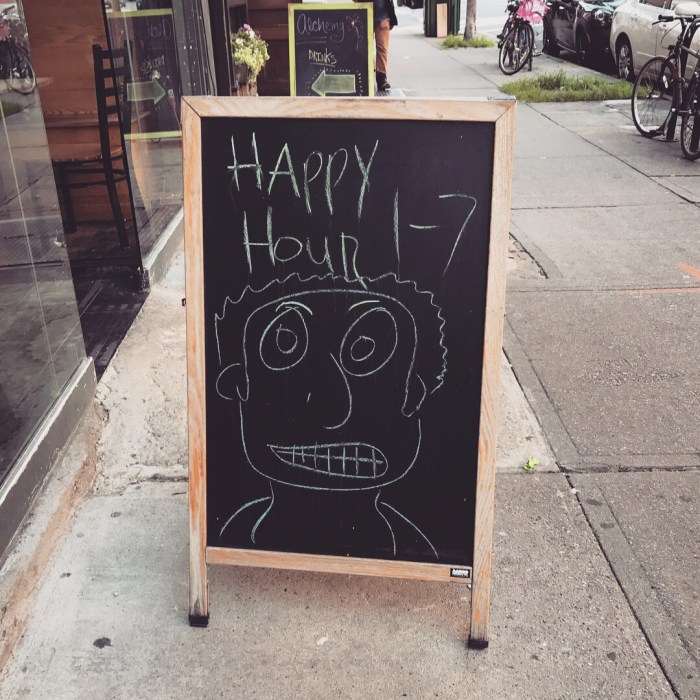 Alchemy
DRINKS
HAPPY
Hour 1-7